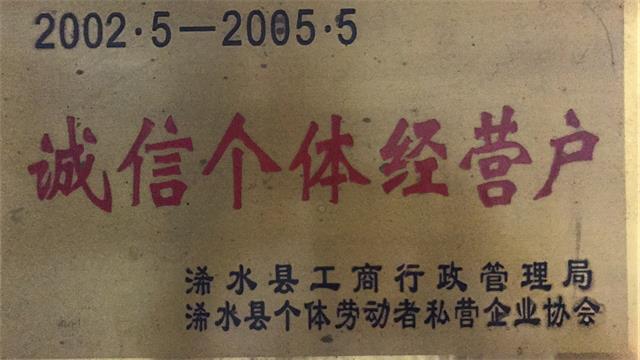 2002·5—2005·5
诚信个体经营户
浠水县工商行政管理局
浠水县个体劳动者私营企业协会